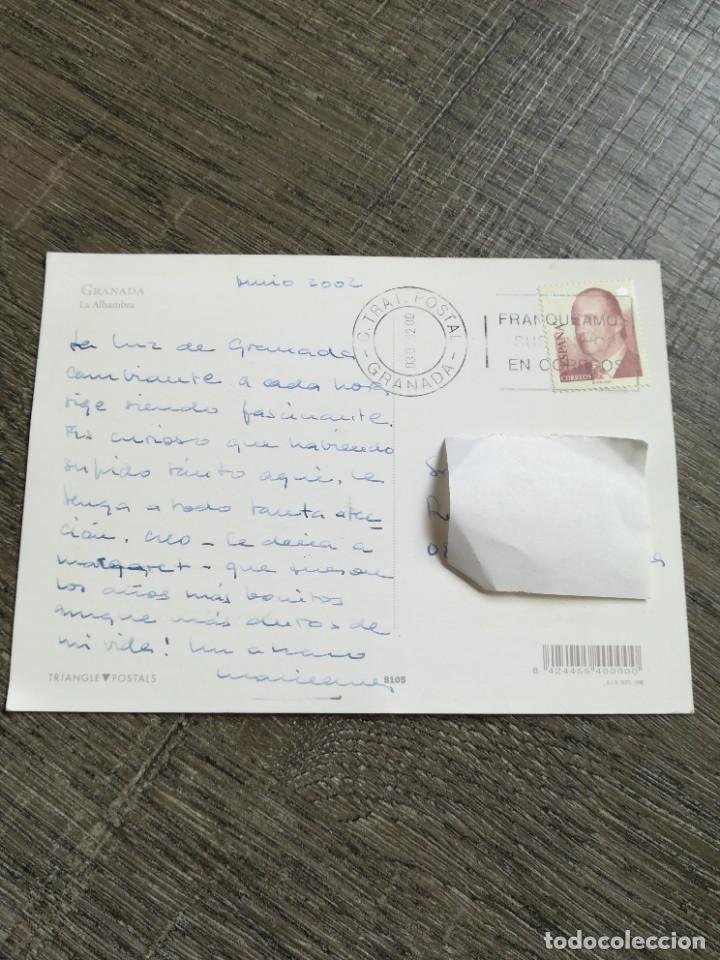 GRANADA
La Alhambra
junio 2002
La luz de Granada
cambiante a cada hora,
sige siendo fascinante.
Es curioso que habiendo
sufrido tanto aquí, le
tenga a todo tanta aten
ción, creo - le decía a
margaret - que fueron
los años más bonitos
aunque más duros de
mi vida! Un abrazo
TRIANGLE POSTALS
8105
C. TRAT. POSTAL
- GRANADA -
FRANQUEAMOS
SUS
EN CORREOS
ESPAÑA
CORREOS
8 424455 400000
todocoleccion